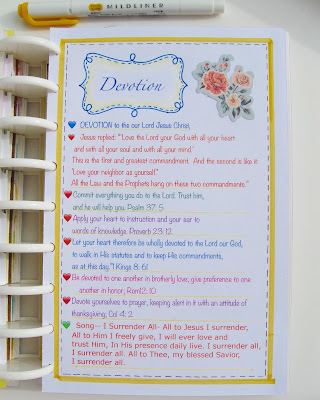 MILDLINER
Devotion
DEVOTION to the our Lord Jesus Christ,
Jesus replied: "'Love the Lord your God with all your heart
and with all your soul and with all your mind.'
This is the first and greatest commandment. And the second is like it:
'Love your neighbor as yourself.'
All the Law and the Prophets hang on these two commandments."
Commit everything you do to the Lord. Trust him,
and he will help you. Psalm 37: 5
Apply your heart to instruction and your ear to
words of knowledge. Proverb 23: 12
Let your heart therefore be wholly devoted to the Lord our God,
to walk in His statutes and to keep His commandments,
as at this day."1 Kings 8: 61
Be devoted to one another in brotherly love; give preference to one
another in honor; Rom12: 10
Devote yourselves to prayer, keeping alert in it with an attitude of
thanksgiving; Col 4: 2
Song-- I Surrender All- All to Jesus I surrender,
All to Him I freely give, I will ever love and
trust Him, In His presence daily live. I surrender all,
I surrender all. All to Thee, my blessed Savior,
I surrender all.